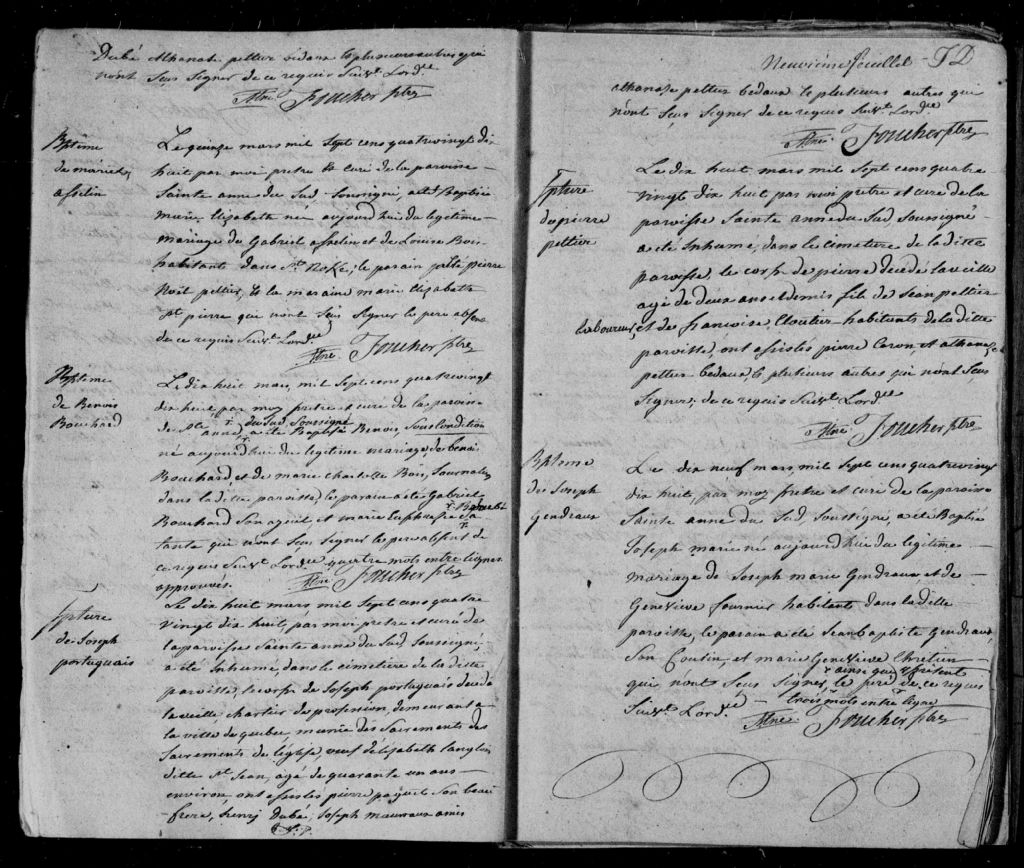 Dubé Athanase peltier bedaux & plusieurs autres qui
n'ont Sçus Signer de ce requis Suivt. Lord.ce
Mne. Foucher ptre
Bptème
de marie el.
asselin
Le quinze mars mil Sept cens quatrevingt dix
huit par moi pretre & curé de la paroisse
Sainte anne du Sud Soussigné, a été Baptisé
marie Elizabeth née aujourd'hui du legitime
mariage de Gabriel asselin et de Louise Bois
habitants dans St. Roke; le parain a été pierre
Noël peltier, & la maraine marie Elizabeth
St pierre qui n'ont Sçus Signer le pere absent
de ce requis Suivt. Lord.ce
Mne. Foucher ptre
Bptème
de Benois
Bouchard
Le dix huit mars, mil Sept cens quatrevingt
dix huit, par moy pretre et curé de la paroisse
de Ste anne du Sud Soussigné
a été Baptisé Benois, Sous condition
né aujourd'hui du legitime mariage de benoi
Bouchard, et de marie charlotte Bois, Journalier
dans la ditte paroisse, le parain a été Gabriel
Bouchard Son ayeul et marie Euphrosie
tante qui n'ont Sçus Signer le pere absent de
ce requis Suivt. Lord.ce quatre mots entre lignes
approuvés. Mne. Foucher ptre
Spture
de Joseph
portuguais
Le dix huit mars mil Sept cens quatre
vingt dix huit, par moi pretre et curé de
la paroisse Sainte anne du Sud Soussigné,
a été Inhumé, dans le cimetiere de la ditte
paroisse, le corps de Joseph portuguais decedé
la veille chartier de profession, demeurant a
la ville de quebec, munie des Sacrements des
Sacrements de l'église, veuf d'Elizabeth langlois
ditte St Jean, agé de quarante un ans
environ, ont assistés pierre paquet Son beau
frere, henry dubé, Joseph mauraux amis
Neuvieme feuillet
athanase peltier bedaux & plusieurs autres qui
n'ont Sçus Signer de ce requis Suivt. Lord.ce
Mne. Foucher ptre
Spture
de pierre
peltier
Le dix huit, mars mil Sept cens quatre
vingt dix huit par moi pretre et curé de la
paroisse Sainte anne du Sud, Soussigné
a été Inhumé, dans le cimetiere de la ditte
paroisse, le corps de pierre decedé la veille
agé de deux ans et demis fils de Jean peltier
laboureur, et de françoise Cloutier habitants de la ditte
paroisse, ont assistés pierre Caron, et athanaze
peltier bedaux, & plusieurs autres qui n'ont Sçus
Signer, de ce requis Suivt. Lord.ce
Mne. Foucher ptre
Bptème
de Joseph
Gendraux
Le dix neuf mars, mil Sept cens quatrevingt
dix huit, par moy pretre et curé de la paroisse
Sainte anne du Sud, Soussigné, a été Baptisé
Joseph marie né aujourd'hui du legitime
mariage de Joseph marie Gendraux et de
Genevieve fournier habitant dans la ditte
paroisse, le parain a été Jean baptiste Gendraux
Son Cousin, et marie Genevieve Chretien
qui n'ont Sçus Signer ainsi que
le pere present de ce requis
Suivt. Lord.ce trois mots entre ligne
Mne. Foucher ptre